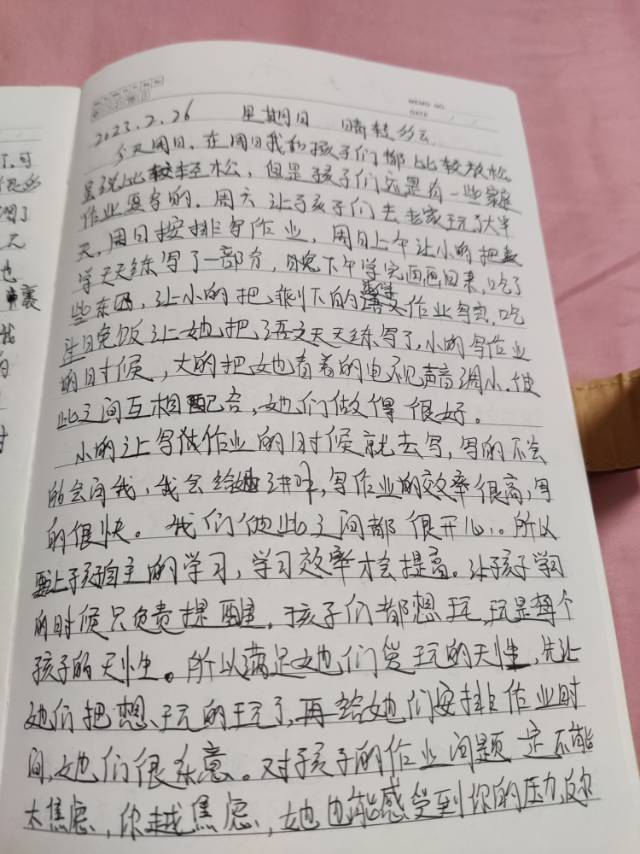 MEMO NO.
DATE
2023.2.26 星期日 晴转多云
今天周日,在周日我和孩子们都比较放松
虽说比较轻松,但是孩子们还是有一些家庭
作业要写的。周六让孩子们去老家玩了大半
天,周日安排写作业,周日上午让小的把数
学天天练写了一部分,下午学完画画回来,吃了
些东西,让小的把剩下的作业写完,吃
完晚饭让她把语文天天练写了,小的写作业
的时候,大的把她看着的电视声音调小,彼
此之间互相配合,她们做得很好。
小的让写做作业的时候就去写,写的不会
的会问我,我会给她讲解,写作业的效率很高,写
的很快。我们彼此之间都很开心。所以
要让孩子自主的学习,学习效率才会提高。让孩子学习
的时候只负责提醒,孩子们都想玩,玩是每个
孩子的天性。所以满足她们贪玩的天性,先让
她们把想玩的玩了,再给她们安排作业时
间,她们很乐意。对孩子的作业问题一定不能
太焦虑,你越焦虑,她也能感受到你的压力,反尔